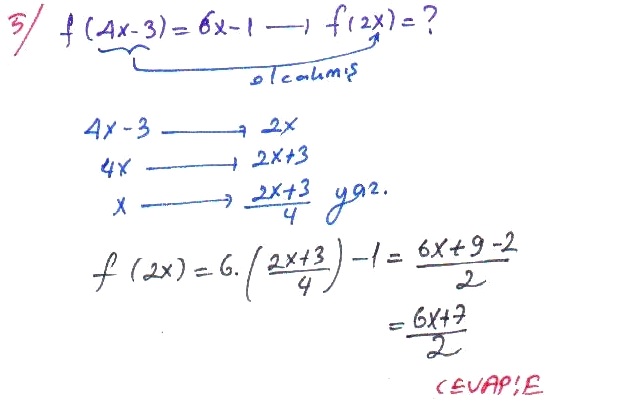 5/ f(4x-3) = 6x-1 → f(2x) = ?
olcakmış
4x-3 → 2x
4x → 2x+3
x → (2x+3)/4 yaz.
f(2x) = 6.((2x+3)/4) -1 = (6x+9-2)/2
= (6x+7)/2
CEVAP:E